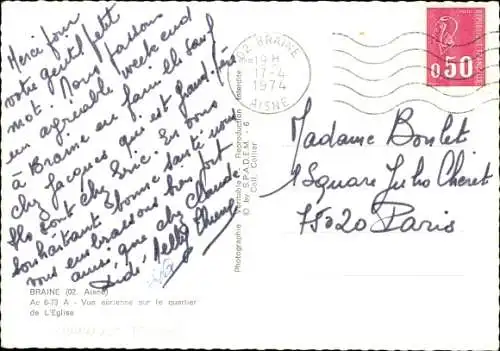 Merci pour
votre gentil petit
mot. Nous passons
un agréable week end
à Braine en famille sauf
chez Jacques qui est grand-père
Ils sont chez Eric. En vous
souhaitant bonne santé nous
vous embrassons bien fort
ainsi que chez Claude.
Didi Nelly
BRAINE (02. Aisne)
Ac 6-73 A - Vue aérienne sur le quartier
de L'Eglise
Photographie véritable - Reproduction interdite
© by S.P.A.D.E.M. - 6
Coll. Cellier
02 BRAINE
19 H
17-4
1974
AISNE
REPUBLIQUE FRANÇAISE
0,50
Madame Boulet
1 Square Jules Cheret
75020 Paris